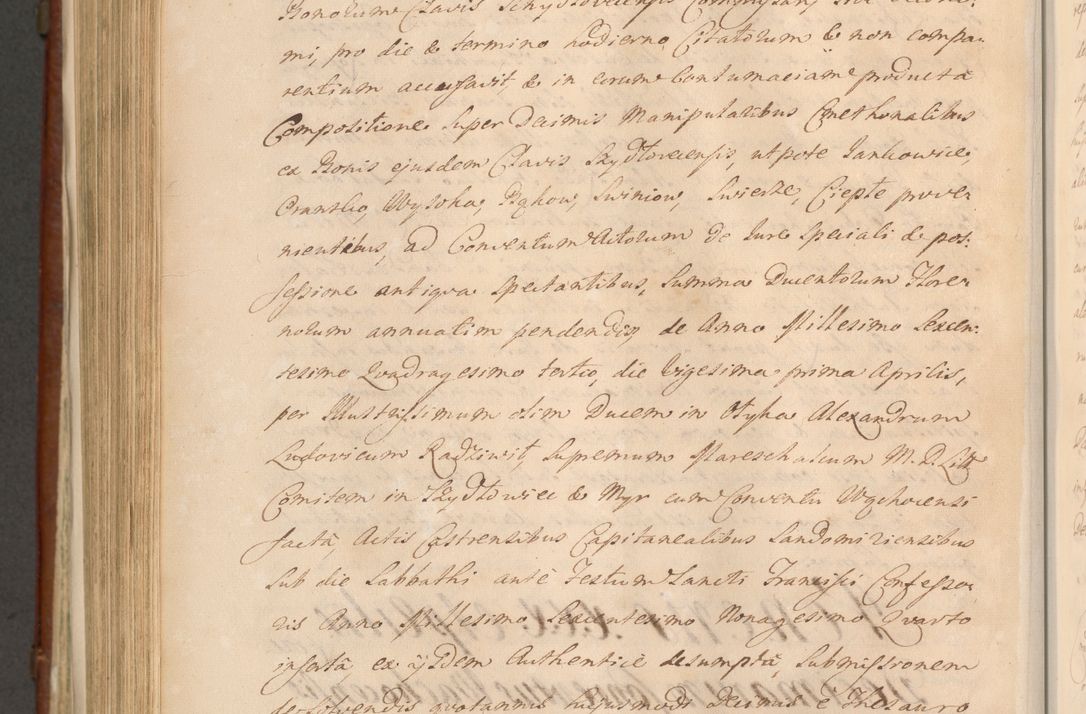 Bonorum Clavis Schydlovecensis
mi, pro die & termino hodierno Citatorum & non compa-
rentium accusavit, & in eorum Contumaciam producta
Compositione Super Decimis Manipulatibus Cmethonalibus
ex Bonis ejusdem Clavis Szydłovecensis, utpote Jankowice,
Wysoka, Swiniow, Swierze, Ciepłe prove-
nientibus, ad Conventum Actorum de Jure speciali & pos-
sessione antiqua spectantibus, Summa Ducentorum Flore-
norum annuatim pendendis de Anno Millesimo Sexcen-
tesimo Quadragesimo tertio, die Vigesima prima Aprilis,
per Illustrissimum olim Ducem in Ołyka Alexandrum
Ludovicum Radziwił, Supremum Mareschalcum M. D. Litt.
Comitem in Szydłowiec & Myr cum Conventu Wąchocensi
factâ Actis Castrensibus Capitanealibus Sandomiriensibus
Sub die Sabbathi ante Festum Sancti Francisci Confesso-
ris Anno Millesimo Sexcentesimo Nonagesimo Quarto
insertâ ex ijsdem Authenticè desumptâ, Submissionem
de solvendis quotannis hujusmodi Decimis è Thesauro